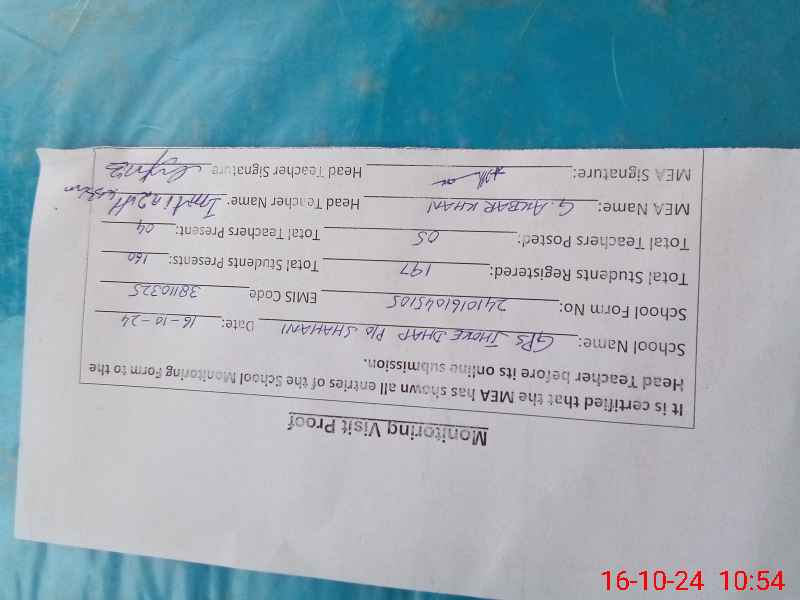 Monitoring Visit Proof
It is certified that the MEA has shown all entries of the School Monitoring Form to the
Head Teacher before its online submission.
School Name: GPS JHOKE DHAP P/O SHAHANI Date: 16-10-24
School Form No: 241016104S105 EMIS Code 38110325
Total Students Registered: 197 Total Students Presents: 160
Total Teachers Posted: 05 Total Teachers Present: 04
MEA Name: G. AKBAR KHAN Head Teacher Name: Imtiaz Hussain
MEA Signature: Head Teacher Signature
16-10-24 10:54